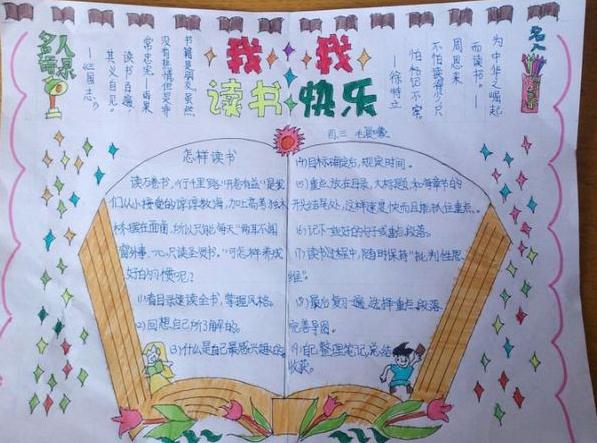 我 我
读书 快乐
名人
名人
为中华之崛起
而读书。——
周恩来
不怕读得少只
怕记不牢。
——徐特立
书籍是朋友，虽然
没有热情但是非
常忠实——雨果
读书百遍，
其义自见。
——《三国志》
怎样读书
读万卷书，行千里路，“开卷有益”是我
们从小接受的谆谆教诲，加上高考独木
桥摆在面前，所以只能每天“两耳不闻
窗外事，一心只读圣贤书。”可怎样养成
好的习惯呢？
(1)看目录速读全书，掌握风格。
(2)回想自己所了解的。
(3)什么是自己最感兴趣的
(4)目标确定后，规定时间。
(5)重点放在目录，大标题和每章节的
开头结尾处，这样速度快而且能抓住重点。
(6)记下好的句子或重点段落。
(7)读书过程中，随时保持“批判性思
维”。
(8)最后复习一遍，选择重点段落
完善导图。
(9)自己整理笔记，总结
收获。